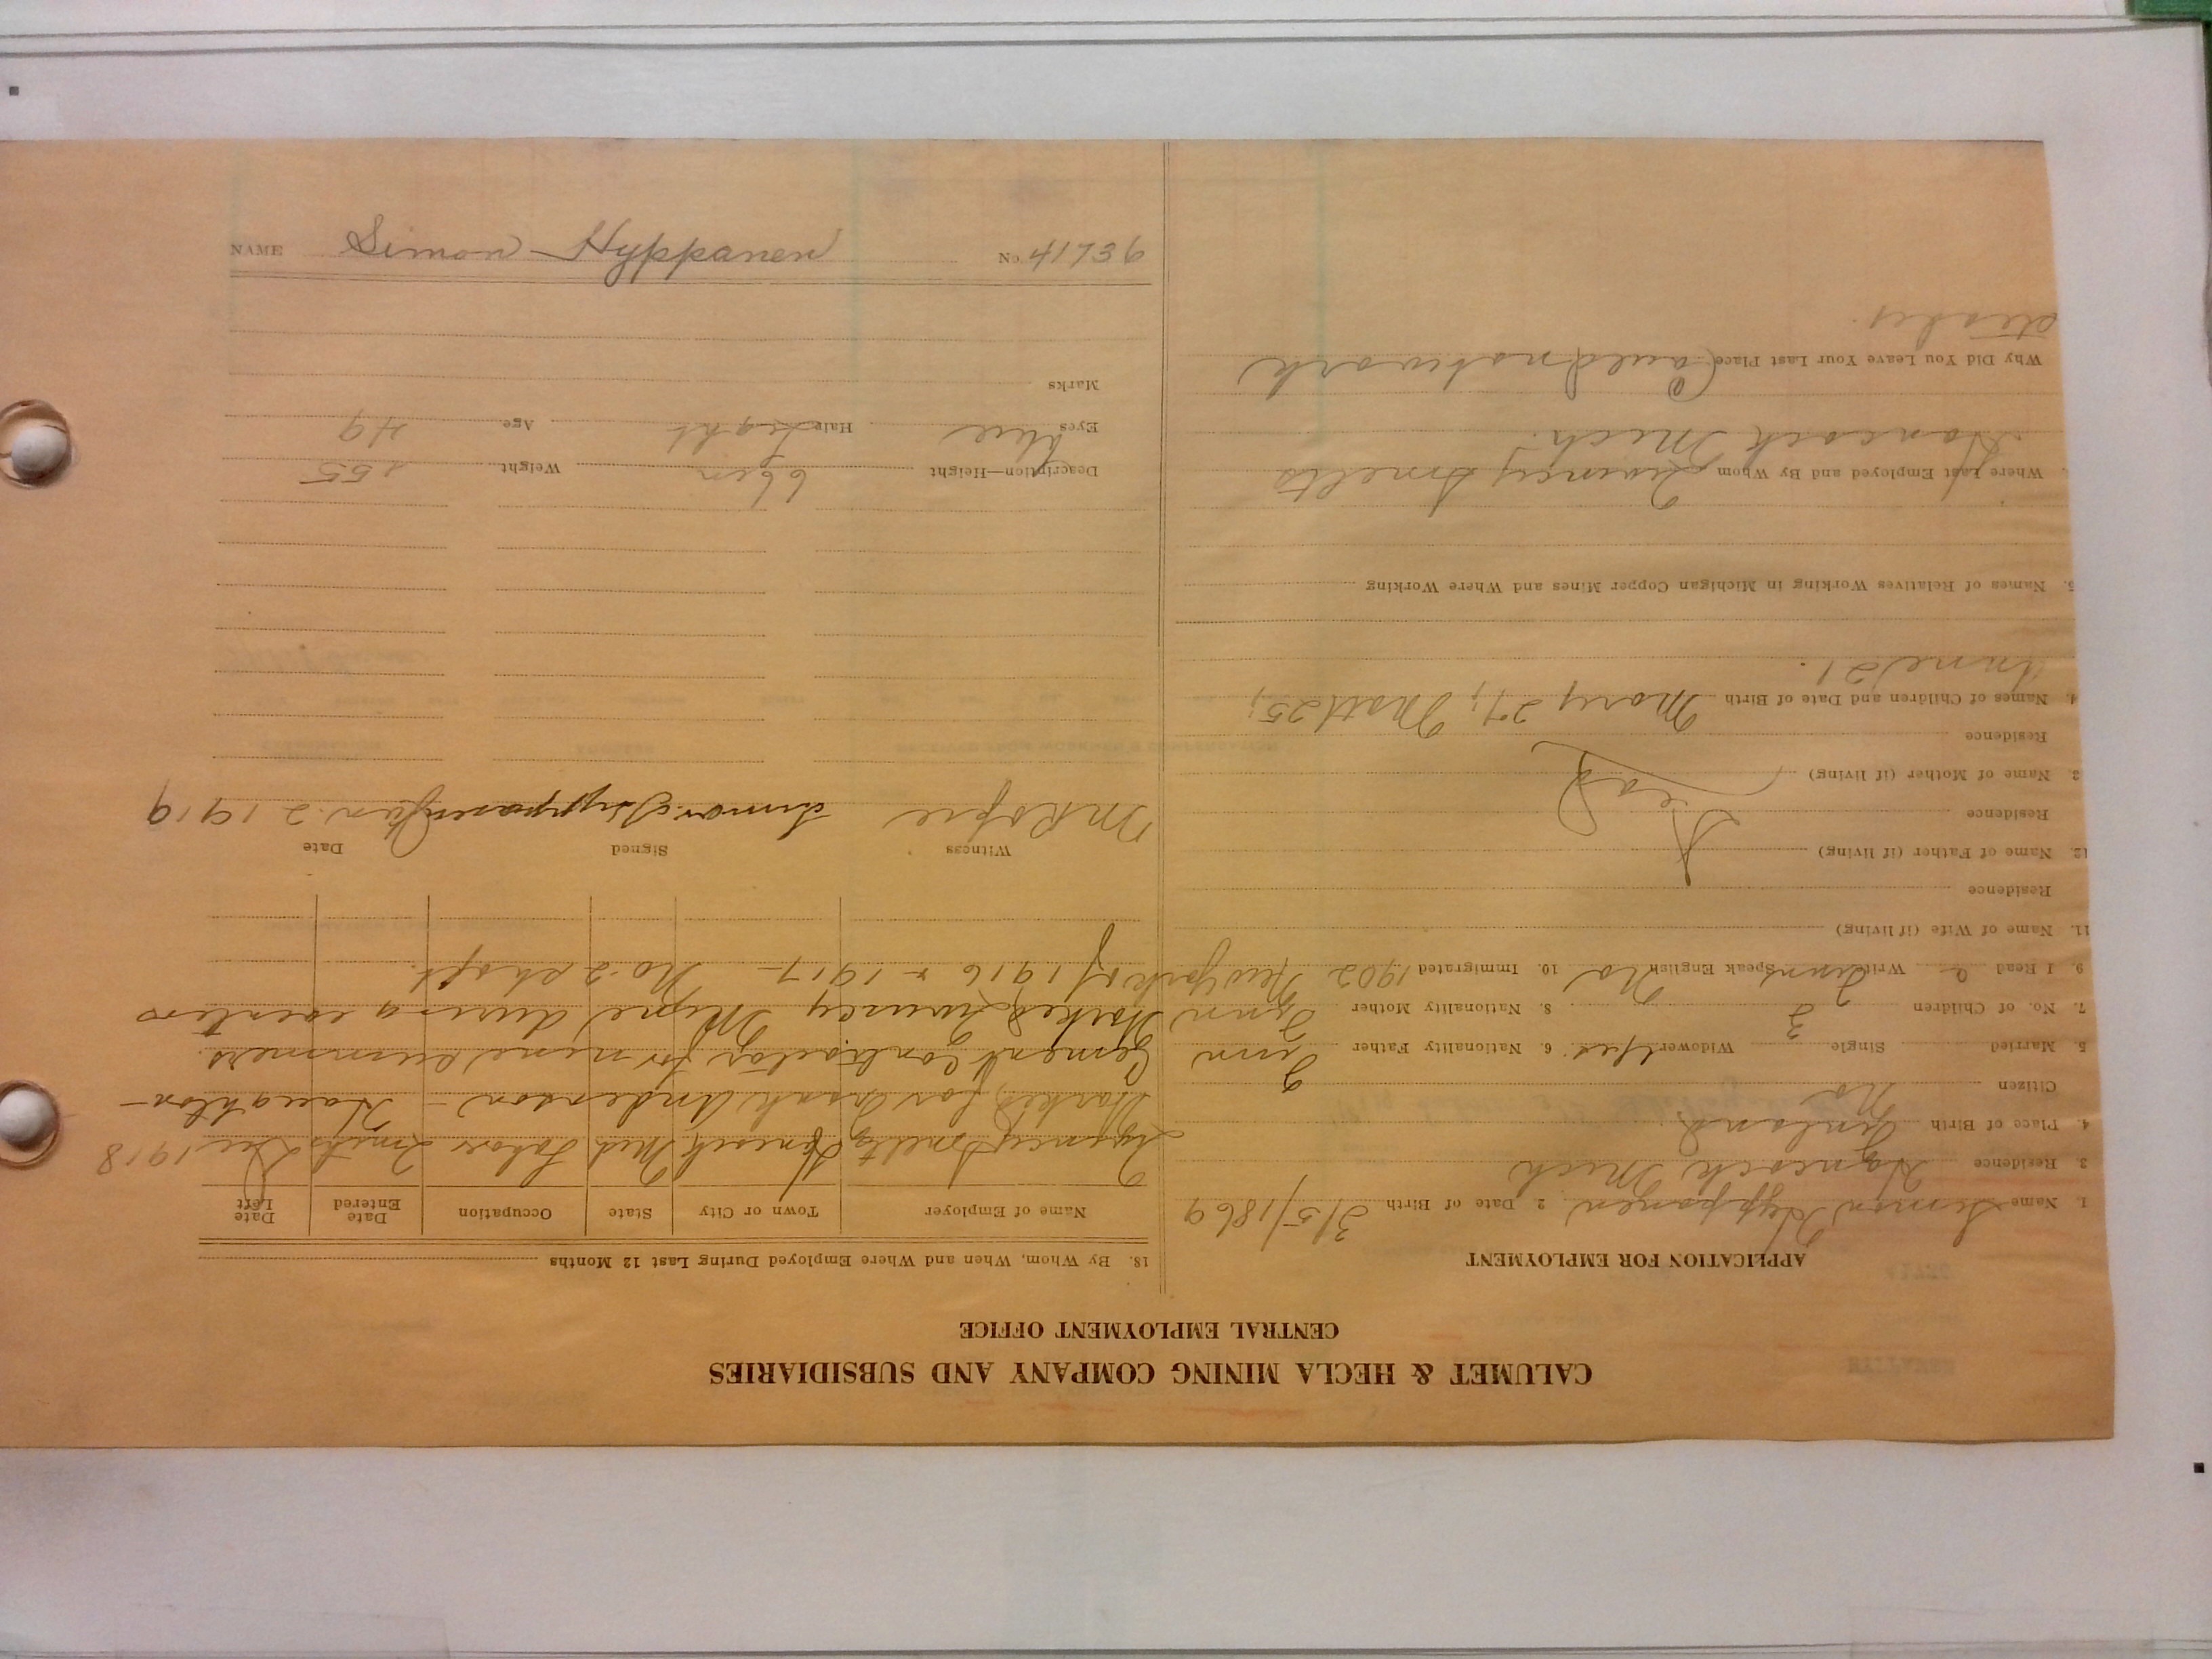 CALUMET & HECLA MINING COMPANY AND SUBSIDIARIES
CENTRAL EMPLOYMENT OFFICE
APPLICATION FOR EMPLOYMENT
1. Name Simon Hyppanen 2. Date of Birth 3/5/1869
3 Residence Hancock Mich
4. Place of Birth Finland
Citizen No
5. Married Single Widower Yes 6. Nationality Father Finn
7. No. of Children 3 8. Nationality Mother Finn
9. I Read & Write Finn Speak English No 10. Immigrated 1902 New York
11. Name of Wife (if living)
Residence
12. Name of Father (if living) Dead
Residence
Name of Mother (if living)
Residence
Names of Children and Date of Birth Mary 27, Matt 25,
21.
5. Names of Relatives Working in Michigan Copper Mines and Where Working
Where Last Employed and By Whom Quincy Smelts
Hancock Mich.
Why Did You Leave Your Last Place Could not work
steady.
18. By Whom, When and Where Employed During Last 12 Months
Name of Employer Town or City State Occupation Date Entered Date Left
Quincy Smelts Hancock Mich Labor Dec 1918
Worked for Isaak Anderson - Houghton -
Cement Contractor for nine summers.
Worked Quincy Mine during winters
of 1916 - 1917 - No. 2 shaft.
Witness Signed Date
Simon Hyppanen Jan. 2 1919
Description—Height Weight 155
Eyes blue Hair Light Age 49
Marks
NAME Simon Hyppanen No. 41736